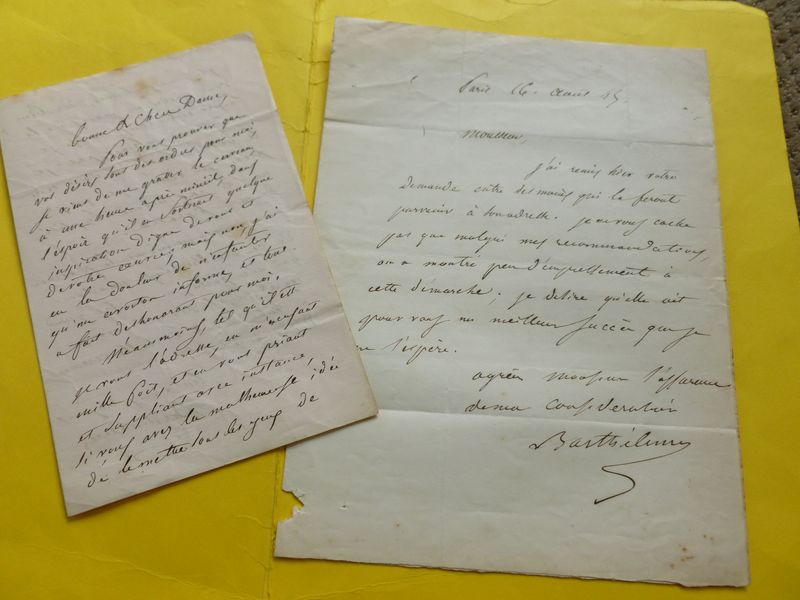 bonne & chère Dame,
Pour vous prouver que
vos désirs sont des ordres pour moi
je viens de me gratter le cerveau,
à une heure après minuit, dans
l'espoir qu'il en sortirait quelque
inspiration digne de vous et
de votre œuvre; mais non, j'ai
eu la douleur de n'enfanter
qu'un avorton informe, et tout
à fait deshonorant pour moi.
Néanmoins, tel qu'il est
je vous l'adresse, en m'excusant
mille fois, et en vous priant
et suppliant avec instance,
si vous avez la malheureuse idée
de le mettre sous les yeux de
Paris 16 aout 45.
Monsieur,
j'ai remis hier votre
demande entre des mains qui la feront
parvenir à son adresse. je ne vous cache
pas que malgré mes recommandations,
on a montré peu d'empressement à
cette démarche; je desire qu'elle ait
pour vous un meilleur succès que je
ne l'espère.
agréez monsieur l'assurance
de ma consideration
Barthélemy